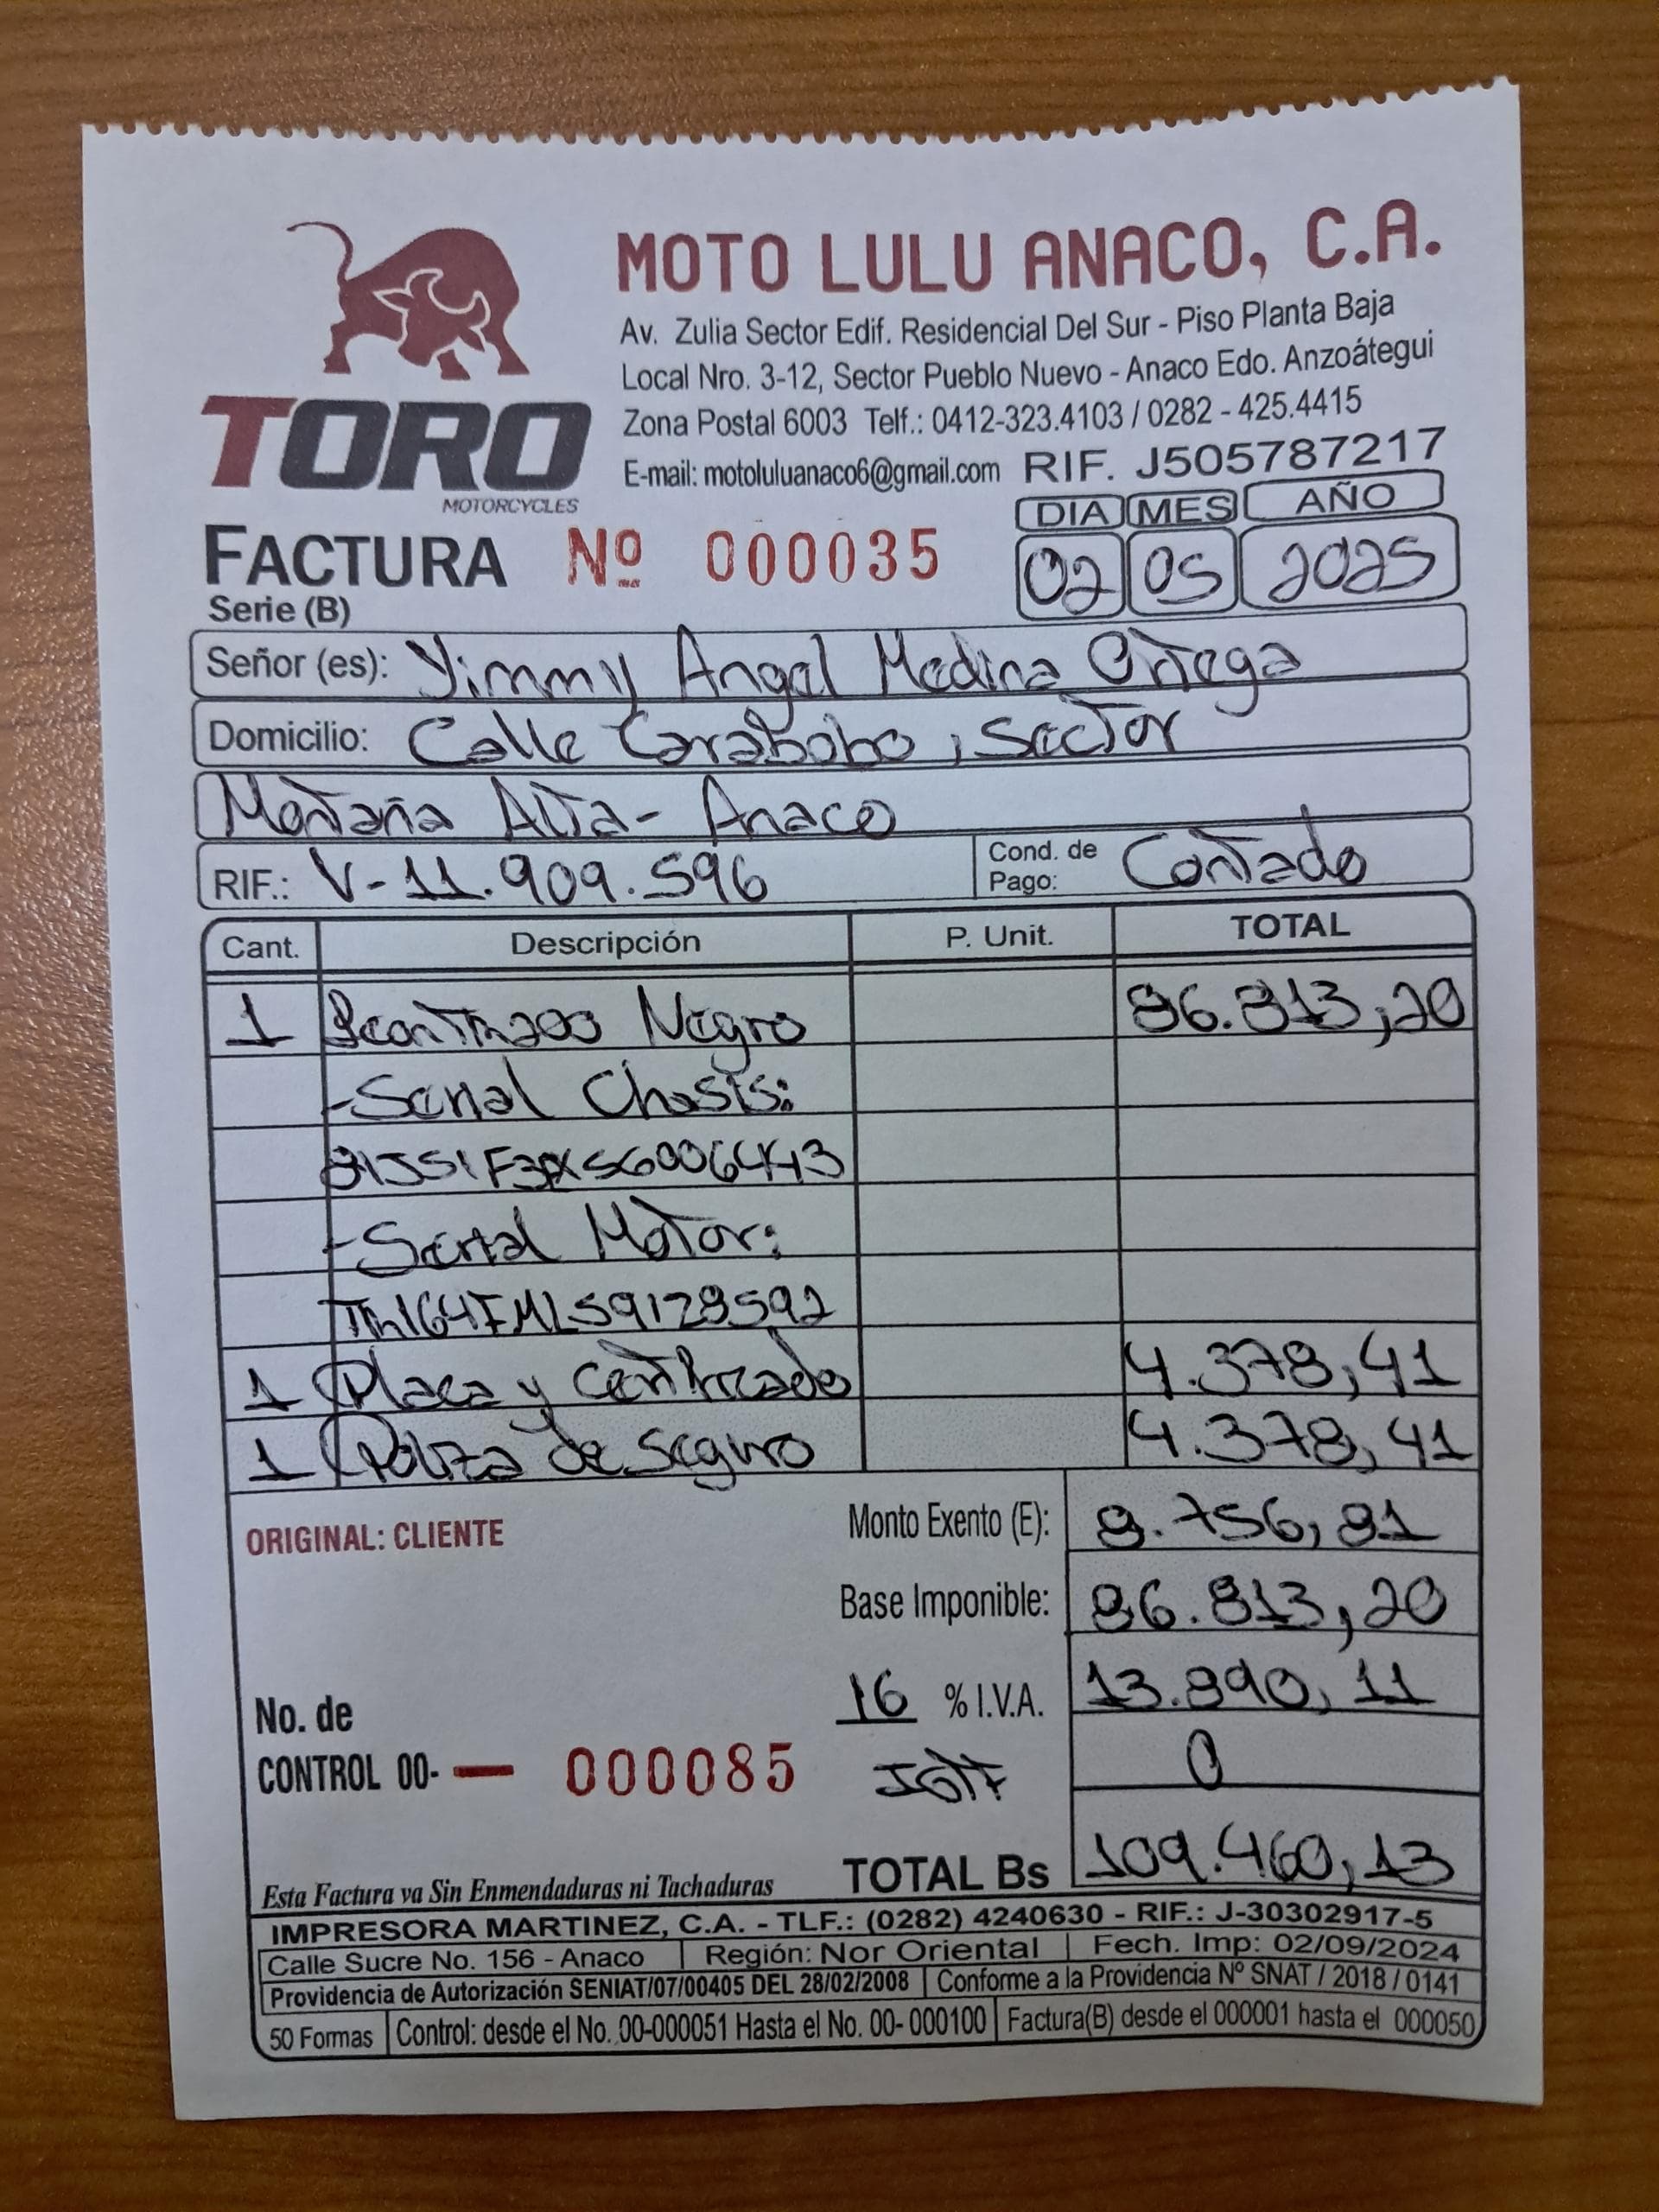 MOTO LULU ANACO, C.A.
Av. Zulia Sector Edif. Residencial Del Sur - Piso Planta Baja
Local Nro. 3-12, Sector Pueblo Nuevo - Anaco Edo. Anzoátegui
Zona Postal 6003 Telf.: 0412-323.4103 / 0282 - 425.4415
E-mail: motoluluanaco6@gmail.com RIF. J505787217
TORO
MOTORCYCLES
DIA MES AÑO
FACTURA Nº 000035 02 05 2025
Serie (B)
Señor (es): Yimmy Angel Medina Ortega
Domicilio: Calle Carabobo, Sector
Montaña Alta - Anaco
RIF.: V-11.909.596 Cond. de Pago: Contado
Cant. Descripción P. Unit. TOTAL
1 Negro 86.813,20
-Serial Chasis:
-Serial Motor:
1 Placa y certificado 4.378,41
1 Poliza de seguro 4.378,41
ORIGINAL: CLIENTE
Monto Exento (E): 8.756,81
Base Imponible: 86.813,20
16 % I.V.A. 13.890,11
No. de
CONTROL 00- — 000085
IGTF 0
TOTAL Bs 109.460,13
Esta Factura va Sin Enmendaduras ni Tachaduras
IMPRESORA MARTINEZ, C.A. - TLF.: (0282) 4240630 - RIF.: J-30302917-5
Calle Sucre No. 156 - Anaco Región: Nor Oriental Fech. Imp: 02/09/2024
Providencia de Autorización SENIAT/07/00405 DEL 28/02/2008 Conforme a la Providencia Nº SNAT / 2018 / 0141
50 Formas Control: desde el No. 00-000051 Hasta el No. 00- 000100 Factura(B) desde el 000001 hasta el 000050